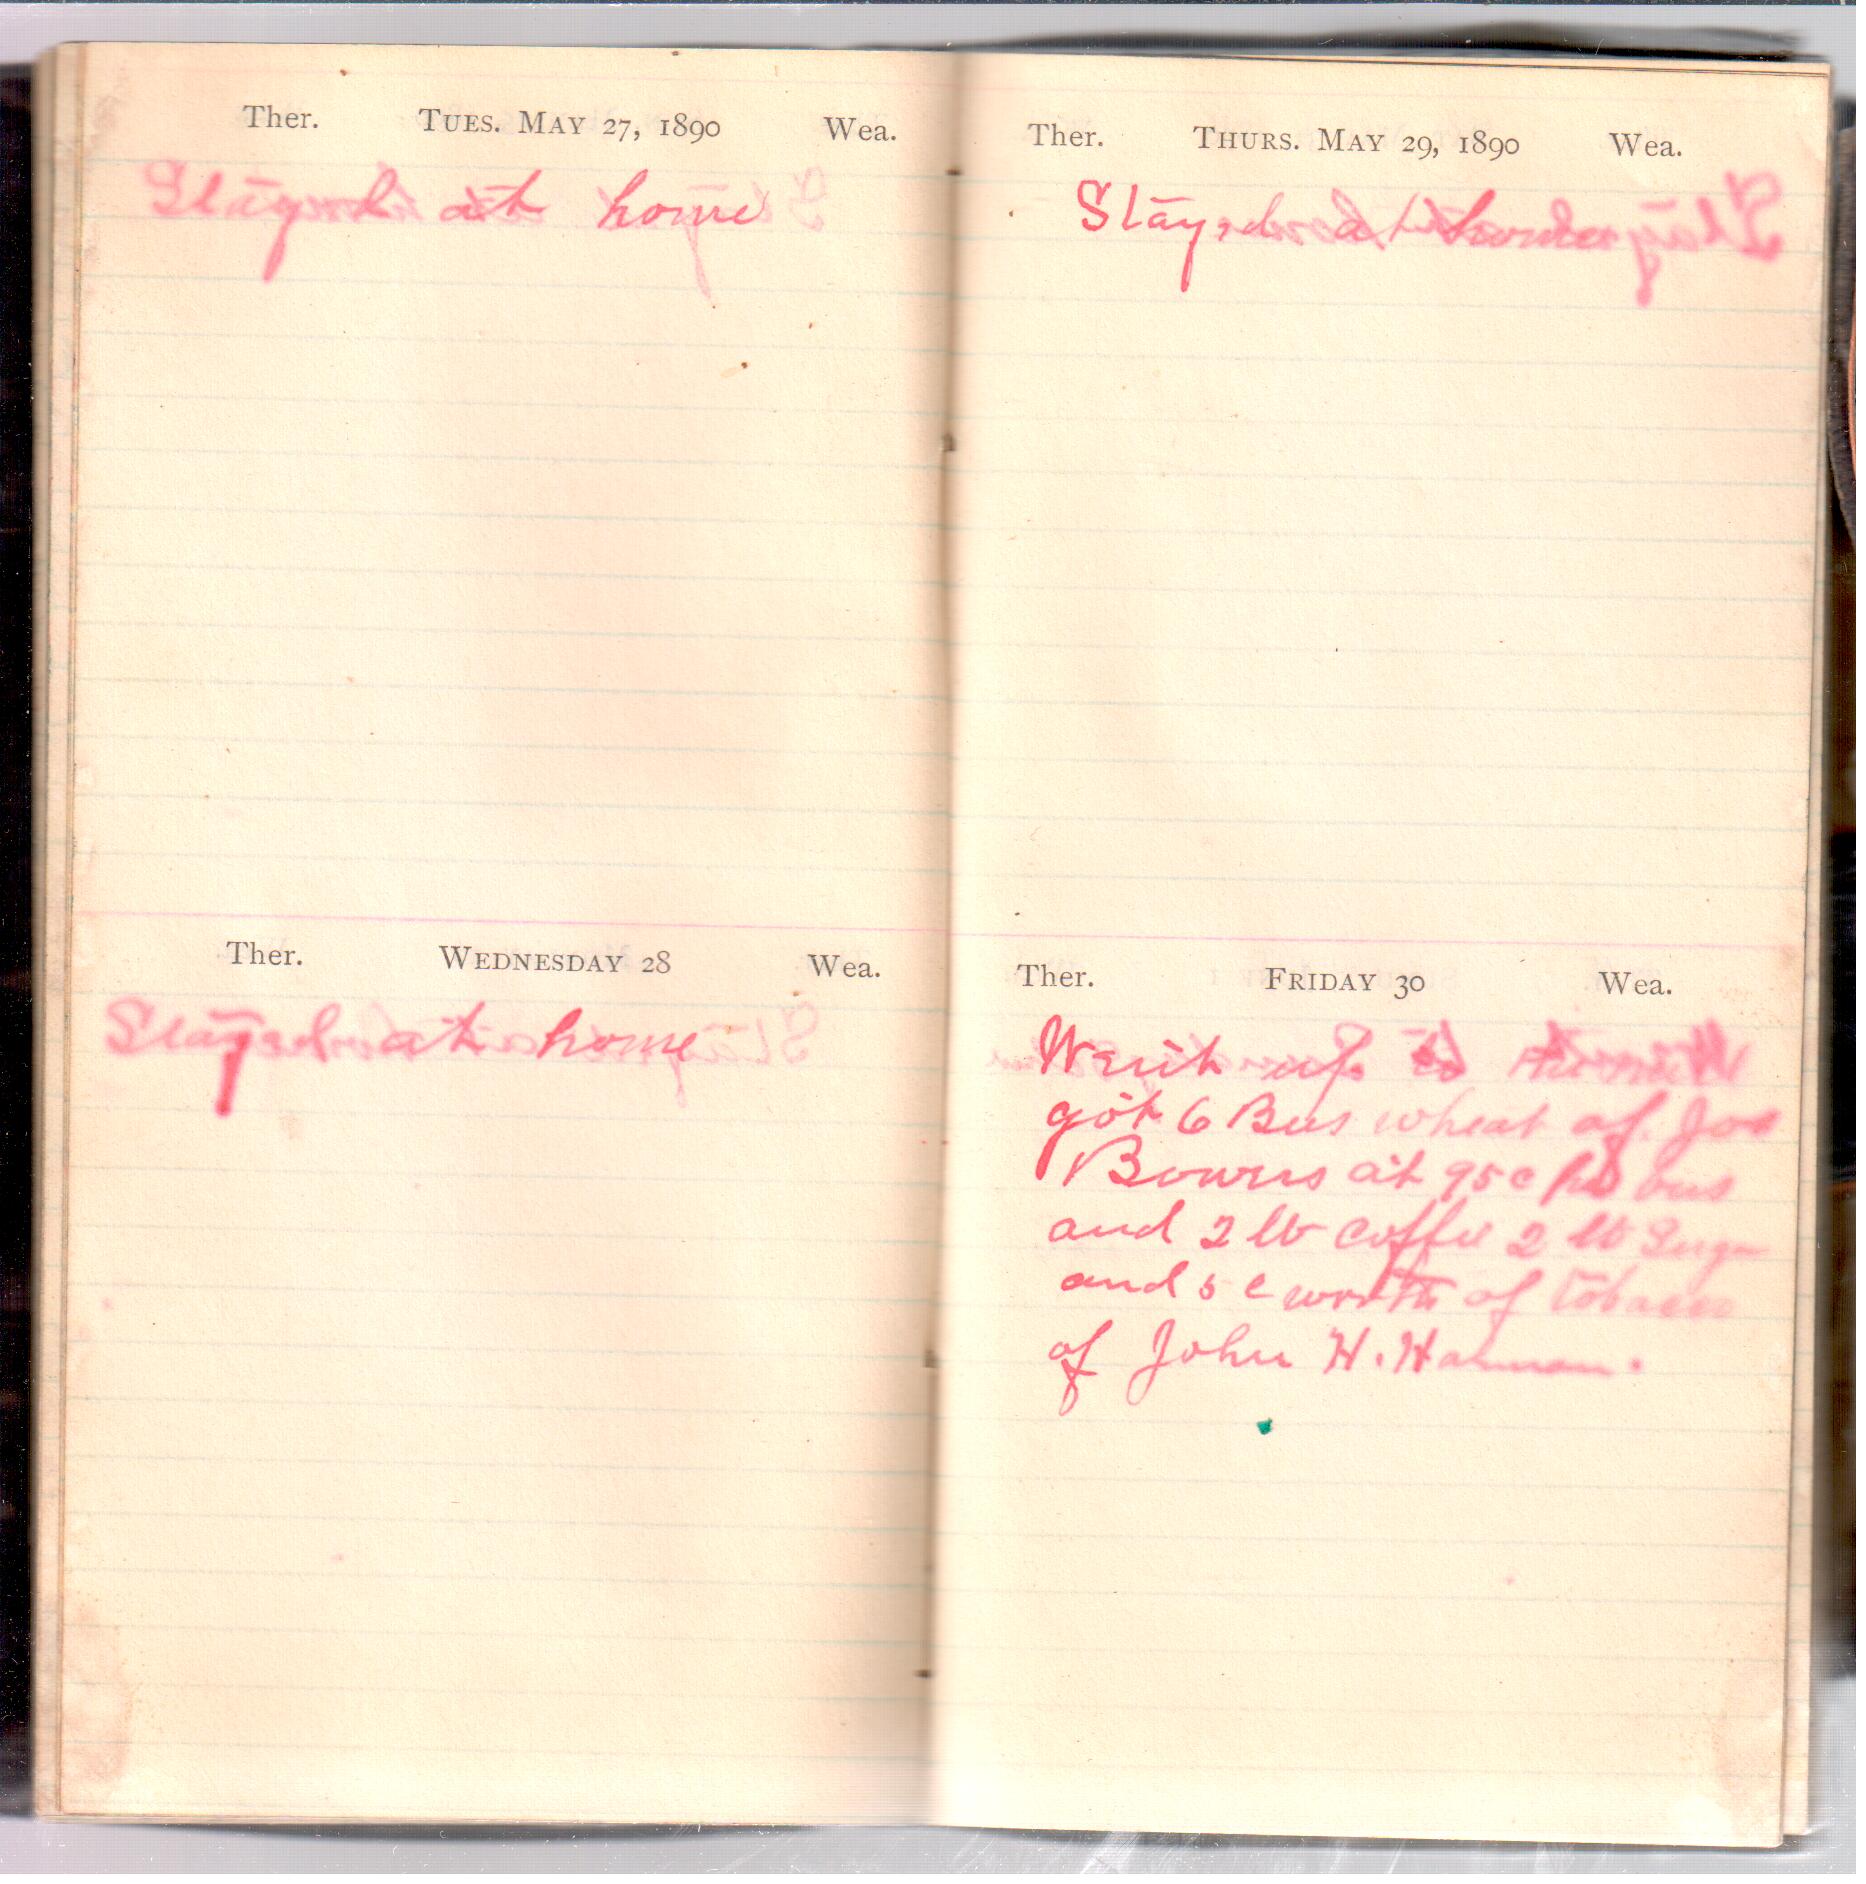 Ther. TUES. MAY 27, 1890 Wea.
Stayed at home
Ther. WEDNESDAY 28 Wea.
Stayed at home
Ther. THURS. MAY 29, 1890 Wea.
Stayed at home
Ther. FRIDAY 30 Wea.
Went up to
got 6 Bus wheat of Joe
Bowers at 95 c bus
and 2 lb coffe 2 lb Sugar
and 5 c worth of tobacco
of John H. Harman.